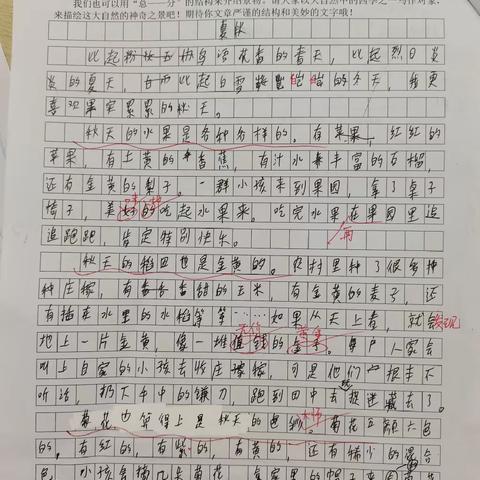 我们也可以用“总——分”的结构来介绍景物。请大家以大自然中的四季之一写作对象，
来描绘这大自然的神奇之景吧！期待你文章严谨的结构和美妙的文字哦！
夏秋
比起鸟语花香的春天，比起烈日炎
炎的夏天，比起白雪皑皑的冬天，我更
喜欢果实累累的秋天。
秋天的水果是各种各样的。有苹果，红红的
苹果，有土黄的香蕉，有汁水丰富的石榴，
还有金黄的梨子。一群小孩来到果园，拿了桌子
椅子，美的吃起水果来。吃完水果在果园里追
追跑跑，肯定特别快乐。
再
秋天的稻田也是金黄的。农村里种了很多种
种庄稼，有香香甜甜的玉米，有金黄的麦子，还
有插在水里的水稻等等……如果从天上看，就会发现
地上一片金黄，像一堆值钱的。每户人家会
叫上自家的小孩去收庄稼，可是他们根本不
听话，扔下手中的镰刀，跑到田中去捉迷藏去了。
菊花也算得上是秋天的。菊花五颜六色
的，有红的，有紫的，有黄的，还有稀少的混合
色，小孩会摘几朵菊花